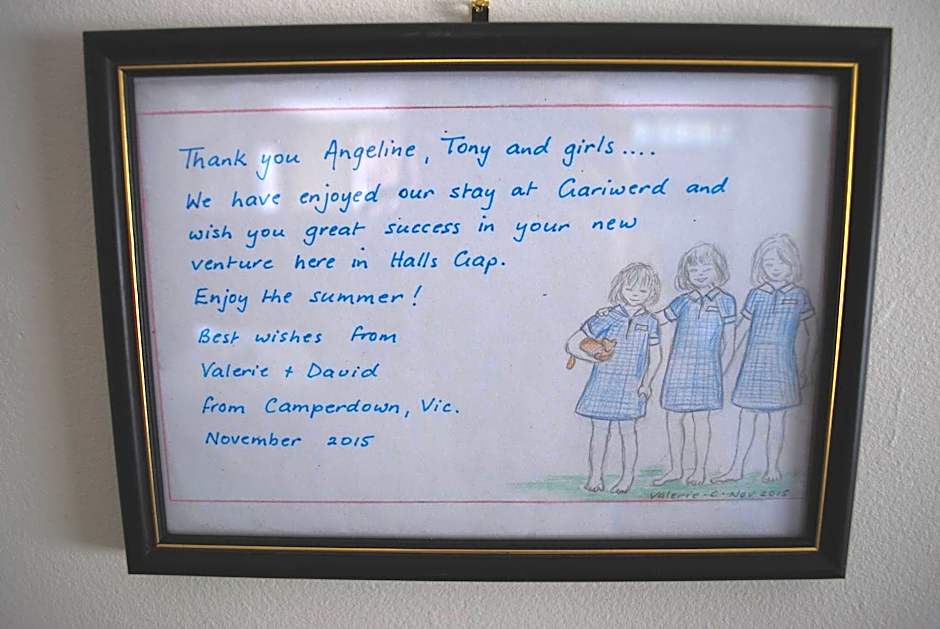 Thank you Angeline, Tony and girls....
We have enjoyed our stay at Gariwerd and
wish you great success in your new
venture here in Halls Gap.
Enjoy the summer!
Best wishes from
Valerie + David
from Camperdown, Vic.
November 2015
Valerie·C·Nov 2015